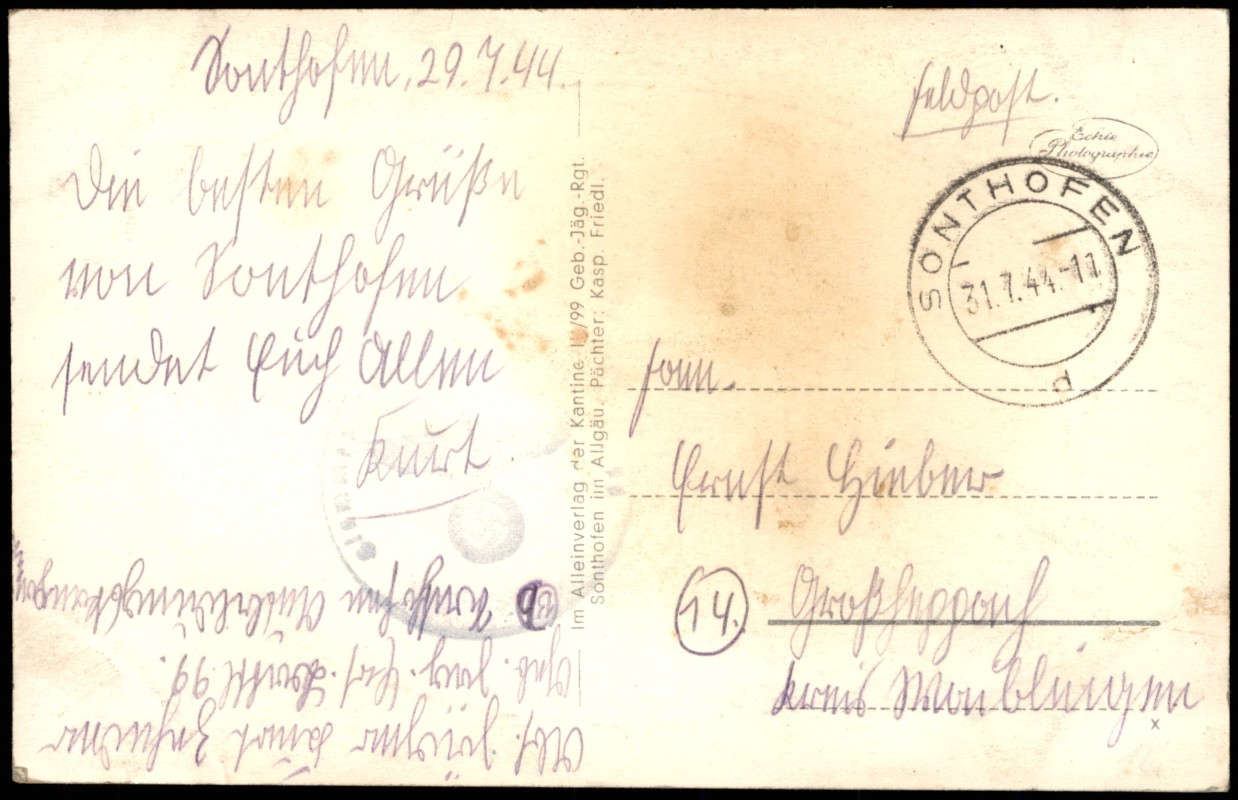 Sonthofen, 29.7.44.
Die besten Grüße
von Sonthofen
sendet Euch Allen
Kurt.
Im Alleinverlag der Kantine I/99 Geb.-Jäg.-Rgt.
Sonthofen im Allgäu. Pächter: Kasp. Friedl.
Feldpost.
Echte
Photographie
SONTHOFEN
31.7.44.-11
d
Fam.
Ernst Hieber
14.
Großheppach
Kreis Waiblingen
x
Abs. Kurt
Geb. Jäg. 99.
Sonthofen